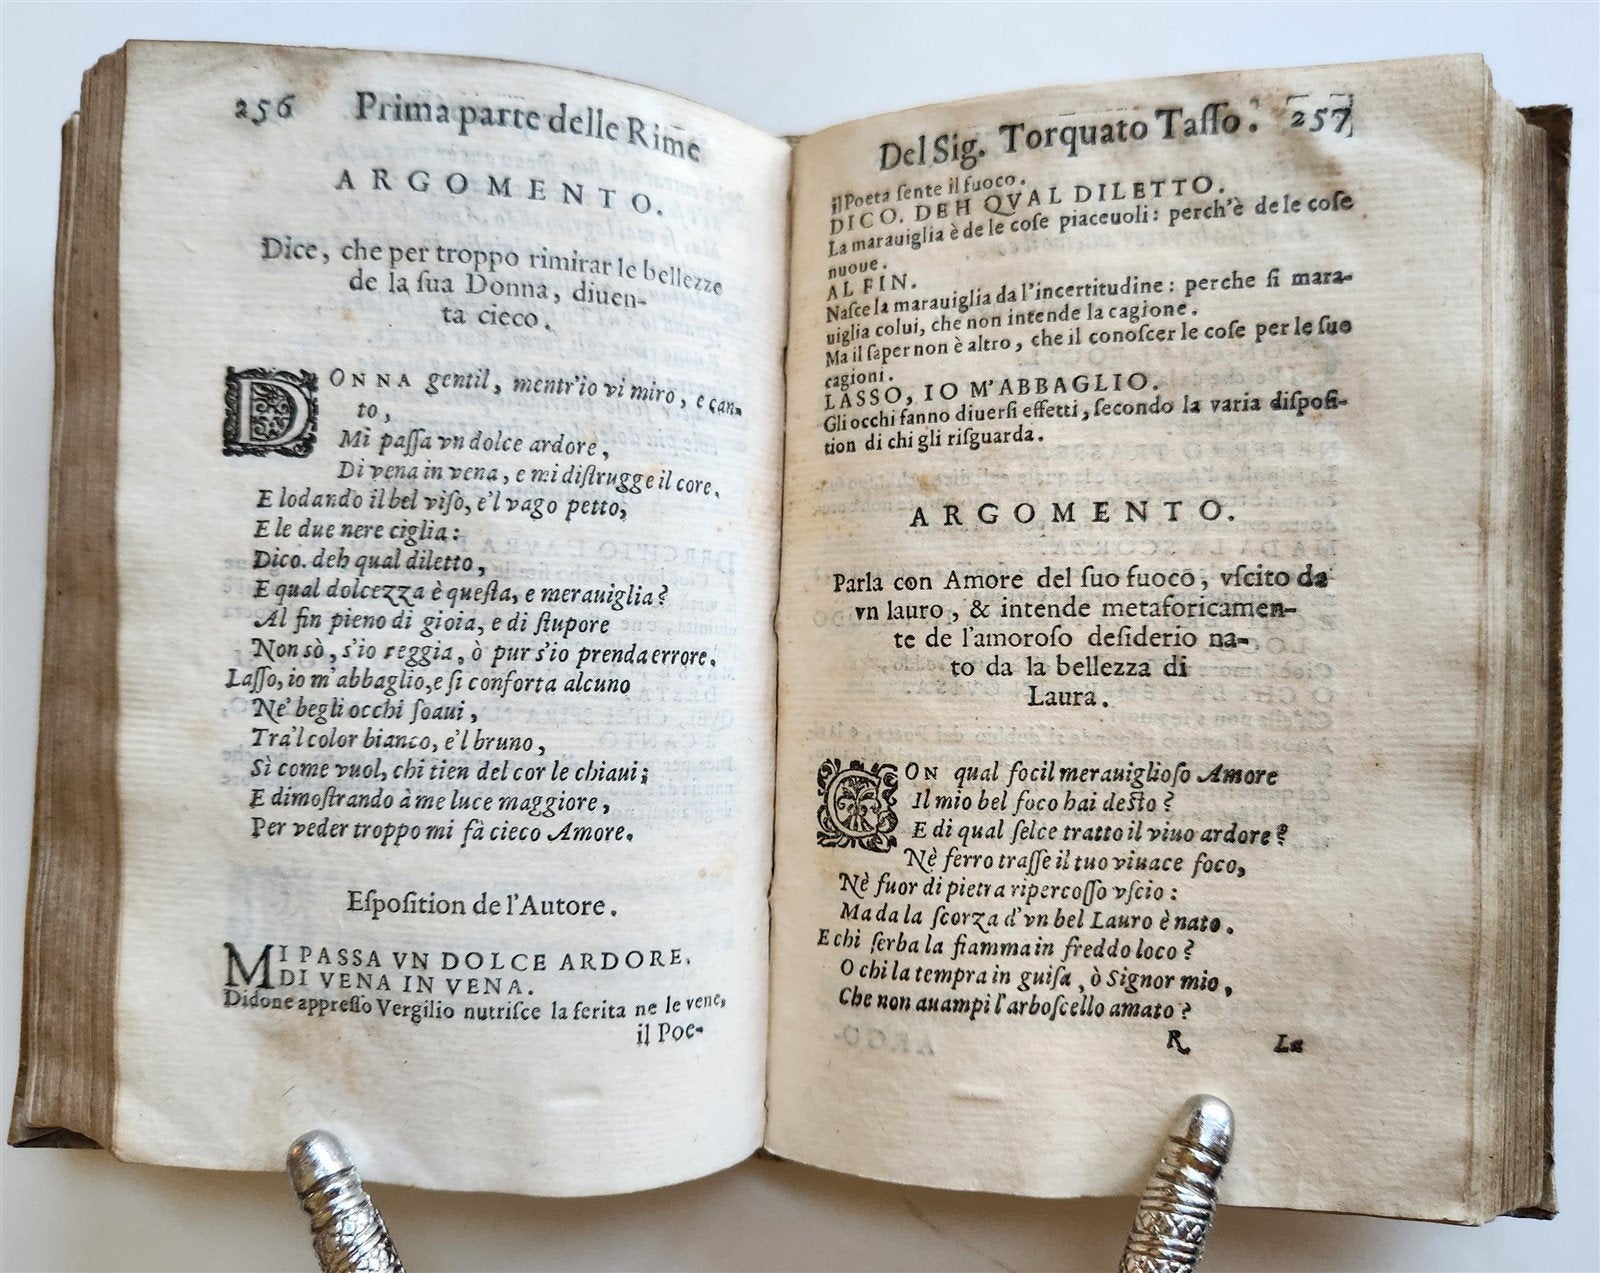 256 Prima parte delle Rime
ARGOMENTO.
Dice, che per troppo rimirar le bellezze
de la ſua Donna, diuen-
ta cieco.
DONNA gentil, mentr'io vi miro, e can-
to,
Mi paſſa vn dolce ardore,
Di vena in vena, e mi diſtrugge il core.
E lodando il bel viſo, e'l vago petto,
E le due nere ciglia:
Dico. deh qual diletto,
E qual dolcezza è queſta, e merauiglia?
Al fin pieno di gioia, e di ſtupore
Non sò, s'io reggia, ò pur s'io prenda errore.
Laſſo, io m'abbaglio, e ſi conforta alcuno
Ne' begli occhi ſoaui,
Tra'l color bianco, e'l bruno,
Sì come vuol, chi tien del cor le chiaui;
E dimoſtrando à me luce maggiore,
Per veder troppo mi fà cieco Amore.
Eſpoſition de l'Autore.
MI PASSA VN DOLCE ARDORE.
DI VENA IN VENA.
Didone appreſſo Vergilio nutriſce la ferita ne le vene,
il Poe-
Del Sig. Torquato Taſſo. 257
il Poeta ſente il fuoco.
DICO. DEH QVAL DILETTO.
La marauiglia è de le coſe piaceuoli: perch'è de le coſe
nuoue.
AL FIN.
Naſce la marauiglia da l'incertitudine: perche ſi mara-
uiglia colui, che non intende la cagione.
Ma il ſaper non è altro, che il conoſcer le coſe per le ſue
cagioni.
LASSO, IO M'ABBAGLIO.
Gli occhi fanno diuerſi effetti, ſecondo la varia diſpoſi-
tion di chi gli riſguarda.
ARGOMENTO.
Parla con Amore del ſuo fuoco, vſcito da
vn lauro, & intende metaforicamen-
te de l'amoroſo deſiderio na-
to da la bellezza di
Laura.
CON qual focil merauiglioſo Amore
Il mio bel foco hai deſto?
E di qual ſelce tratto il viuo ardore?
Nè ferro traſſe il tuo viuace foco,
Nè fuor di pietra ripercoſſo vſcio:
Ma da la ſcorza d'vn bel Lauro è nato.
E chi ſerba la fiamma in freddo loco?
O chi la tempra in guiſa, ò Signor mio,
Che non auampi l'arboſcello amato?
R La